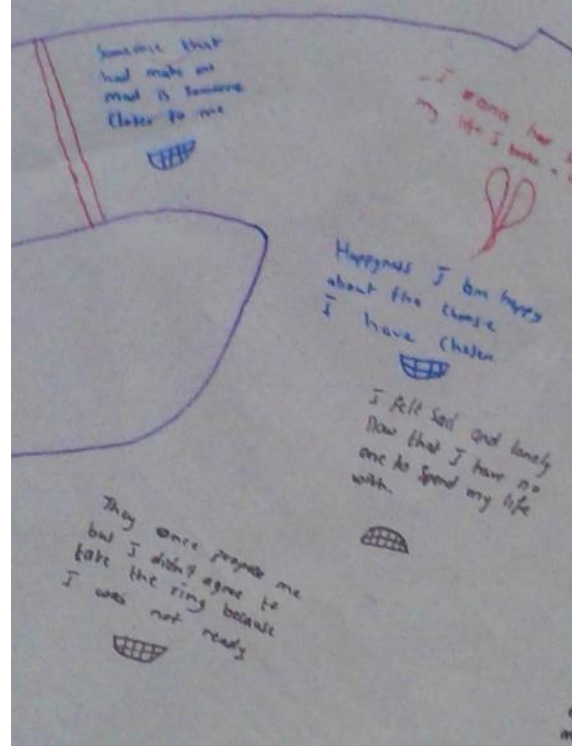 Someone that
had make me
mad is someone
Closer to me
I
my life I
Happyness I am happy
about the course
I have chosen
I felt Sad and lonely
Now that I have no
one to Spend my life
with.
They once propose me
but I didn't agree to
take the ring because
I was not ready